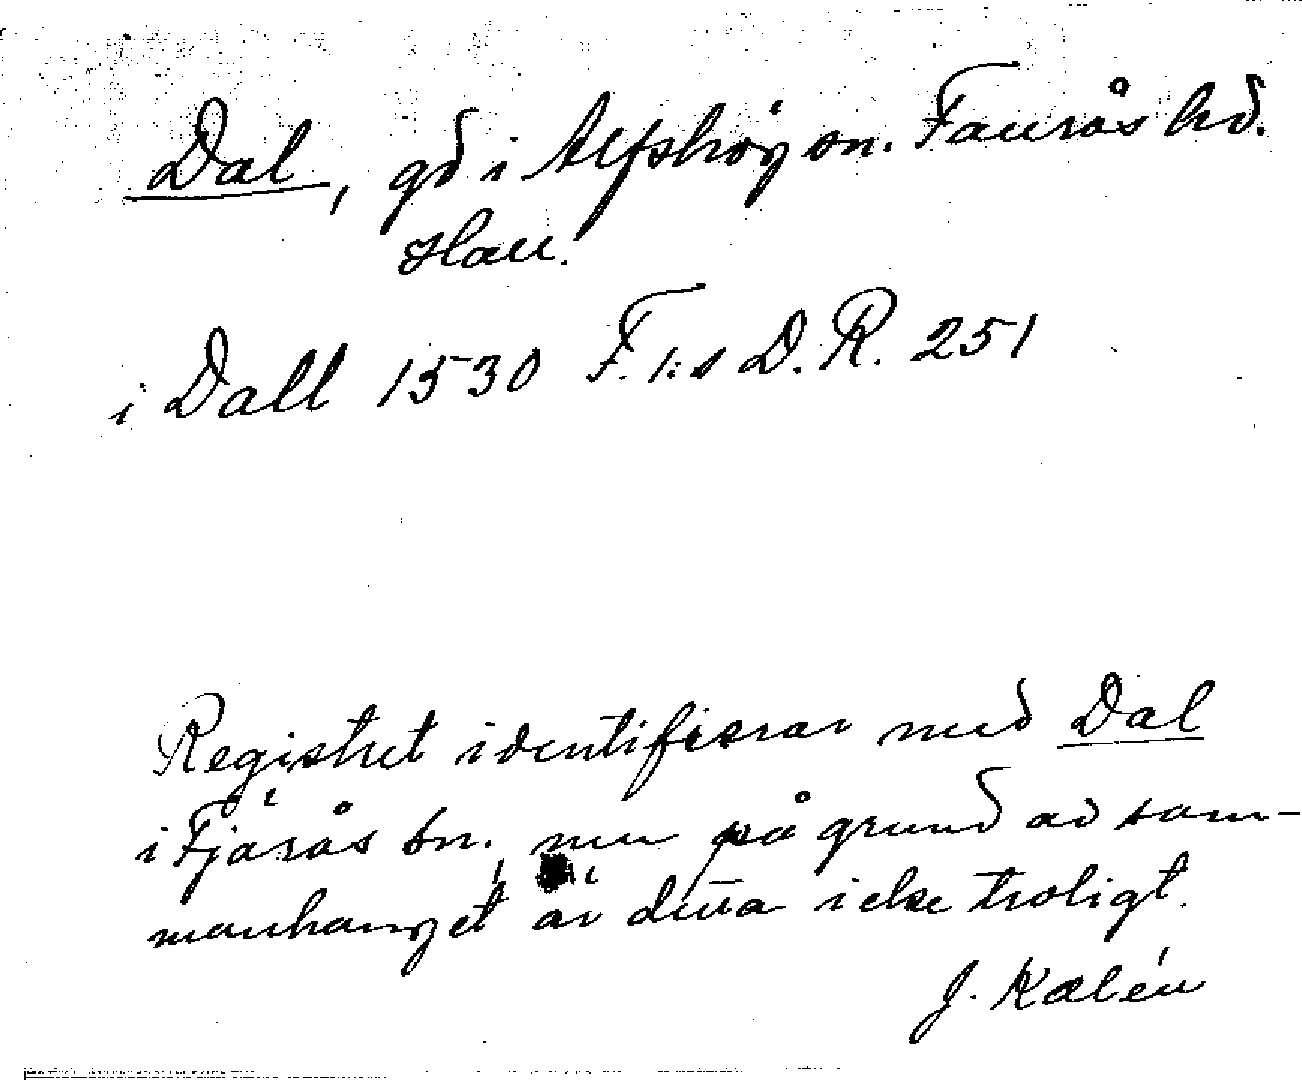 Dal, gd i Alfshög sn. Faurås hd.
Hall.
i Dall 1530 F. 1:s D. R. 251
Registret identifierar med Dal
i Fjärås sn., men på grund av sam-
manhanget är detta icke troligt.
J. Kalén